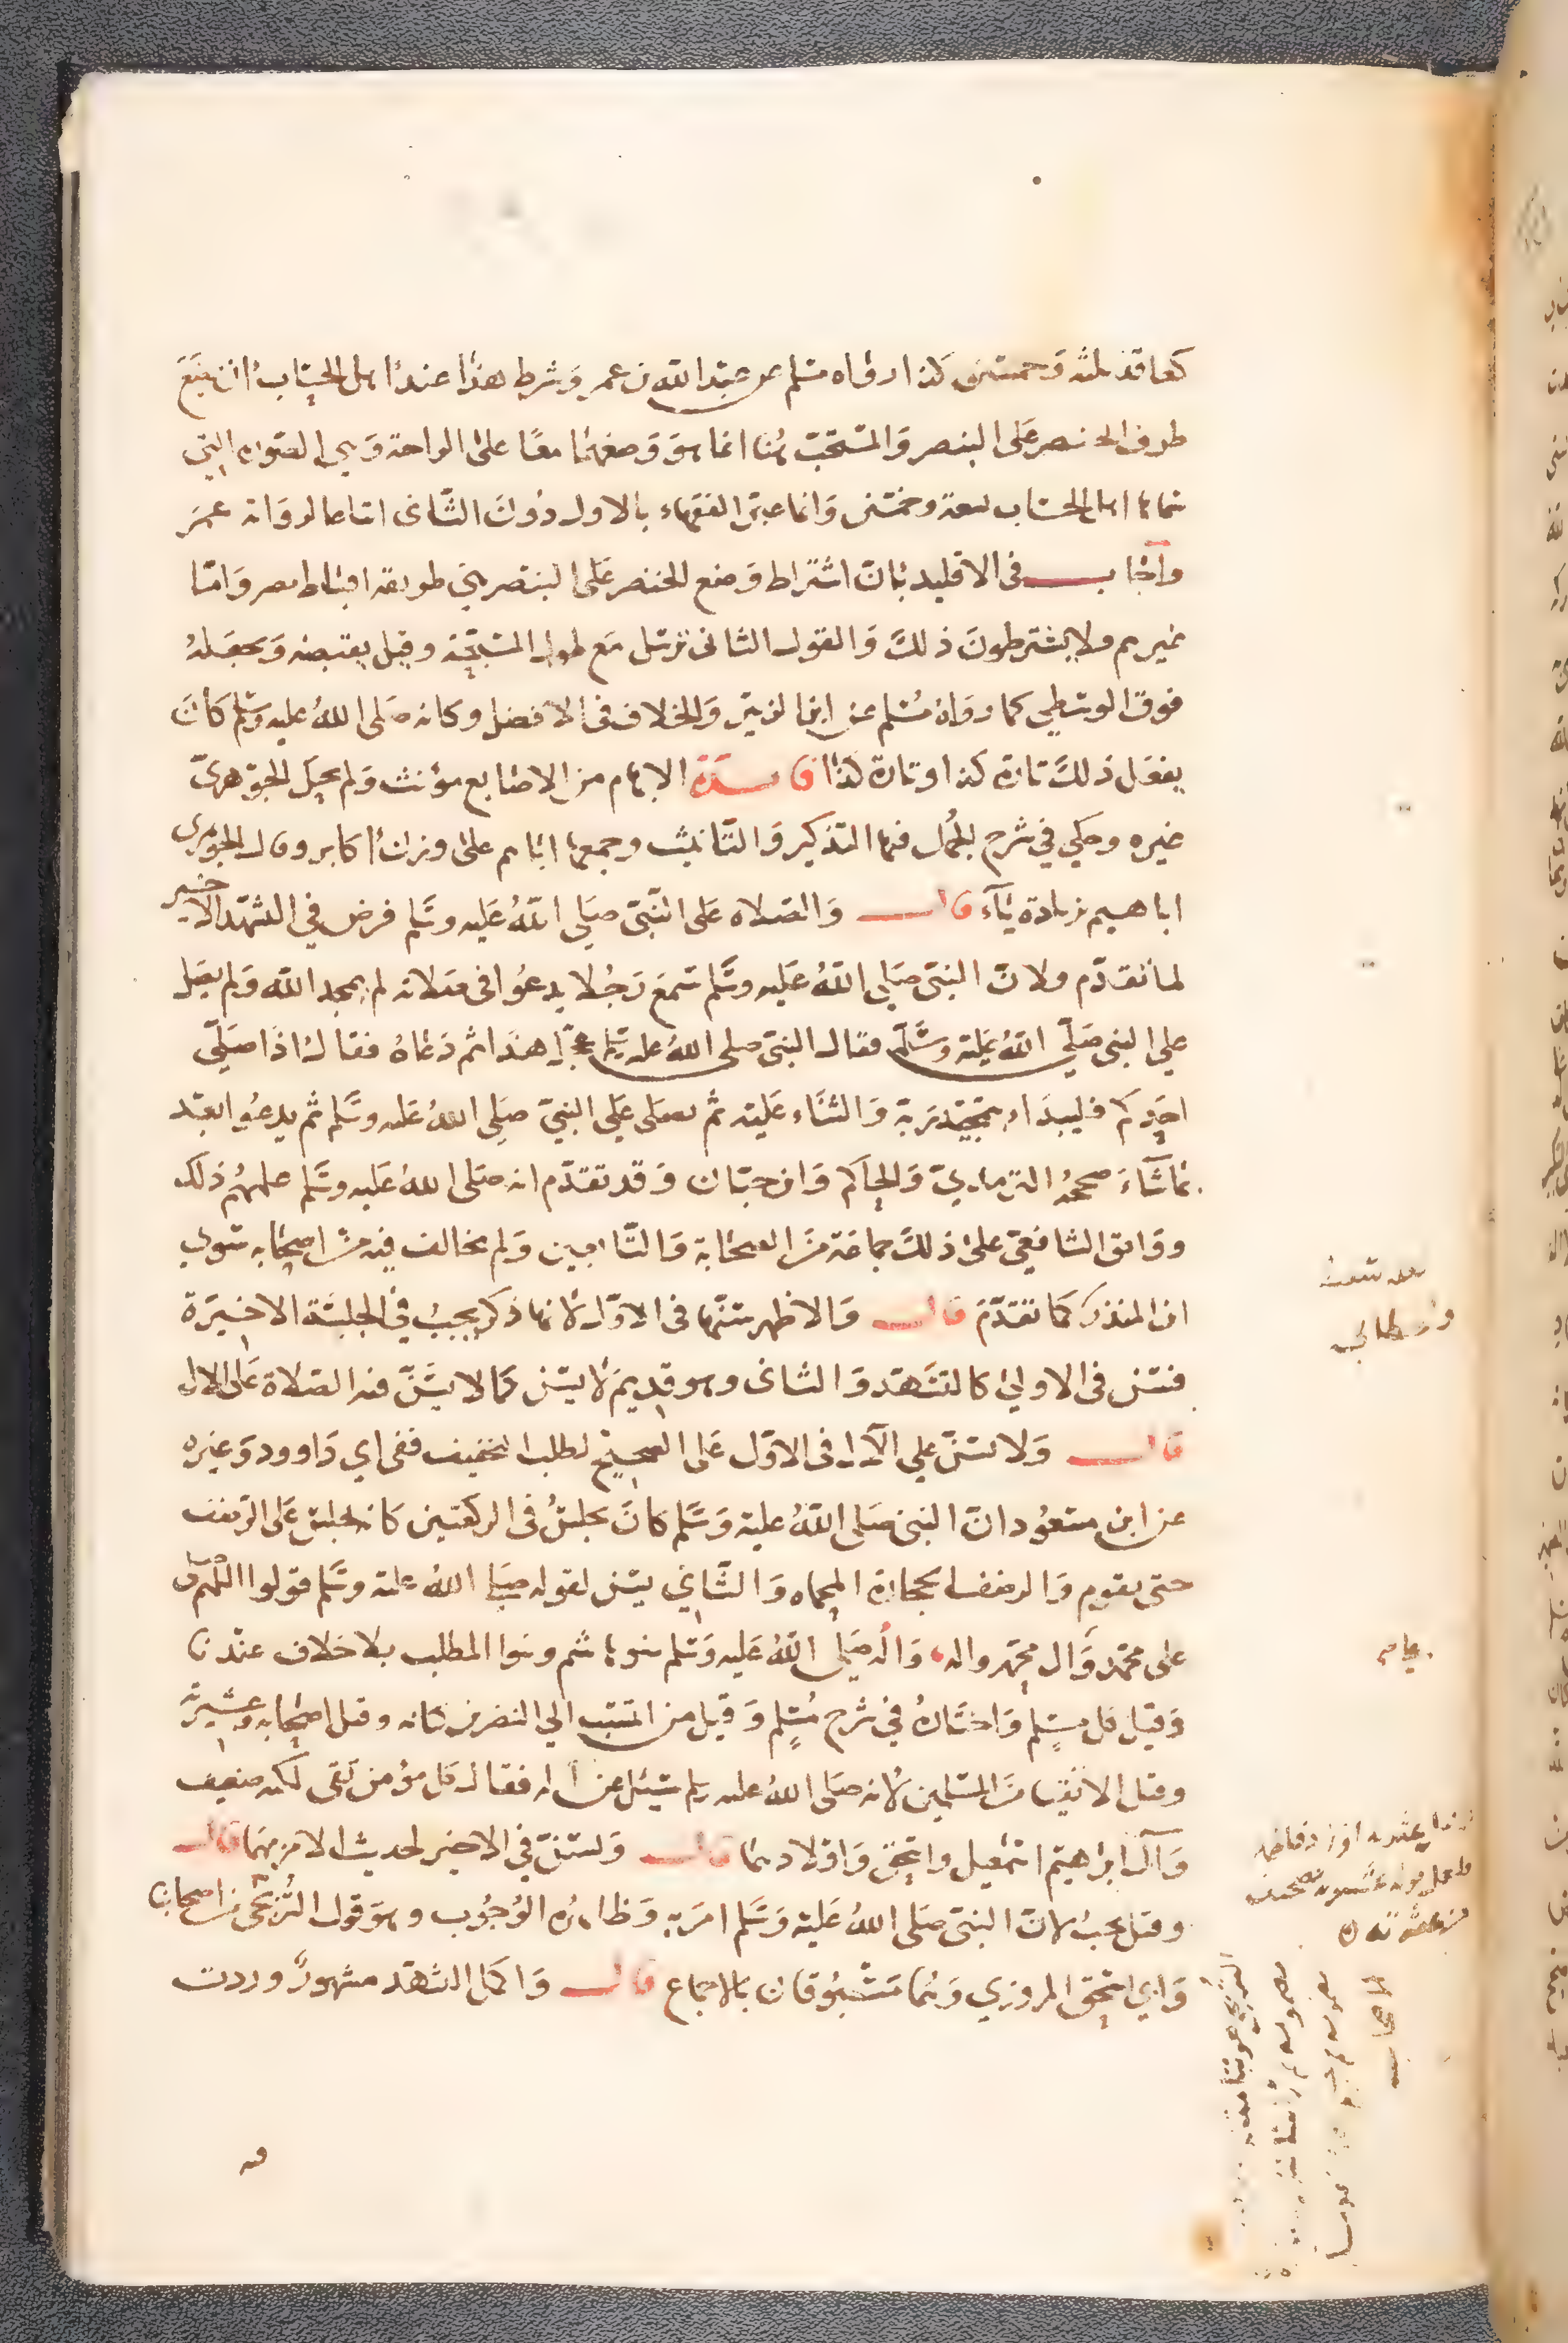 كعاقد ثلثة وخمسين كذا رواه مسلم عن عبد الله بن عمر وشرط هذا عند اهل الحساب ان يضع
طرف الخنصر على البنصر والمستحب هنا انما هو وضعهما معًا على الراحة وهي الصورة التي
سماها اهل الحساب تسعة وخمسين وانما عبر الفقهاء بالاول دون الثاني اتباعا لرواية عمر
وأجاب في الاقليد بان اشتراط وضع الخنصر على البنصر هي طريقة اقباط مصر واما
غيرهم ولا يشترطون ذلك والقول الثاني يرسل مع طول المسبحة وقيل يقبضه ويجعله
فوق الوسطى كما رواه مسلم عن ابن الزبير والخلاف في الافضل وكانه صلى الله عليه وسلم كان
يفعل ذلك تارة كذا وتارة كذا فائدة الابهام من الاصابع مؤنث ولم يحك الجوهري
غيره وحكي في شرح الجمل فيها التذكير والتأنيث وجمعها اباهم على وزن اكابر وقال الجوهري
اباهيم بزيادة ياء قال والصلاة على النبي صلى الله عليه وسلم فرض في التشهد الاخير
لما تقدم ولان النبي صلى الله عليه وسلم سمع رجلا يدعوا في صلاته لم يمجد الله ولم يصل
على النبي صلى الله عليه وسلم فقال النبي صلى الله عليه وسلم عجل هذا ثم دعاه فقال اذا صلى
احدكم فليبدا بتمجيد ربه والثناء عليه ثم يصلي على النبي صلى الله عليه وسلم ثم يدعوا بعد
بما شاء صححه الترمذي والحاكم وابن حبان وقد تقدم انه صلى الله عليه وسلم علمهم ذلك
ووافق الشافعي على ذلك جماعة من الصحابة والتابعين ولم يخالف فيه من اصحابه سوى
ابن المنذر كما تقدم قال والاظهر سنها في الاول لانها ذكر يجب في الجلسة الاخيرة
فتسن في الاولى كالتشهد والثاني وهو قديم لا يسن كما لا يسن فيه الصلاة على الال
قال ولا تسن على الآل في الاول على الصحيح لطلب التخفيف ففي ابي داوود وغيره
عن ابن مسعود ان النبي صلى الله عليه وسلم كان يجلس في الركعتين كانه يجلس على الرضف
حتى يقوم والرضف الحجارة المحماه والثاني يسن لقوله صلى الله عليه وسلم قولوا اللهم صل
على محمد وآل محمد واله وآله صلى الله عليه وسلم بنو هاشم وبنوا المطلب بلا خلاف عندنا
وقيل كل مسلم واختاره في شرح مسلم وقيل من انتسب الى النضر بن كنانه وقيل اصحابه وعشيرته
وقيل الاتقيا من المسلمين لانه صلى الله عليه وسلم سئل عن اله فقال كل مؤمن تقي لكنه ضعيف
وآل ابراهيم اسمعيل واسحق واولادهما قال وتسن في الاخير لحديث الامر بهما قال
وقيل يجب لان النبي صلى الله عليه وسلم امر به وظاهره الوجوب وهو قول التربجي من اصحابنا
وابي اسحق المروزي وهما مسبوقان بالاجماع قال واكمل التشهد مشهور وردت